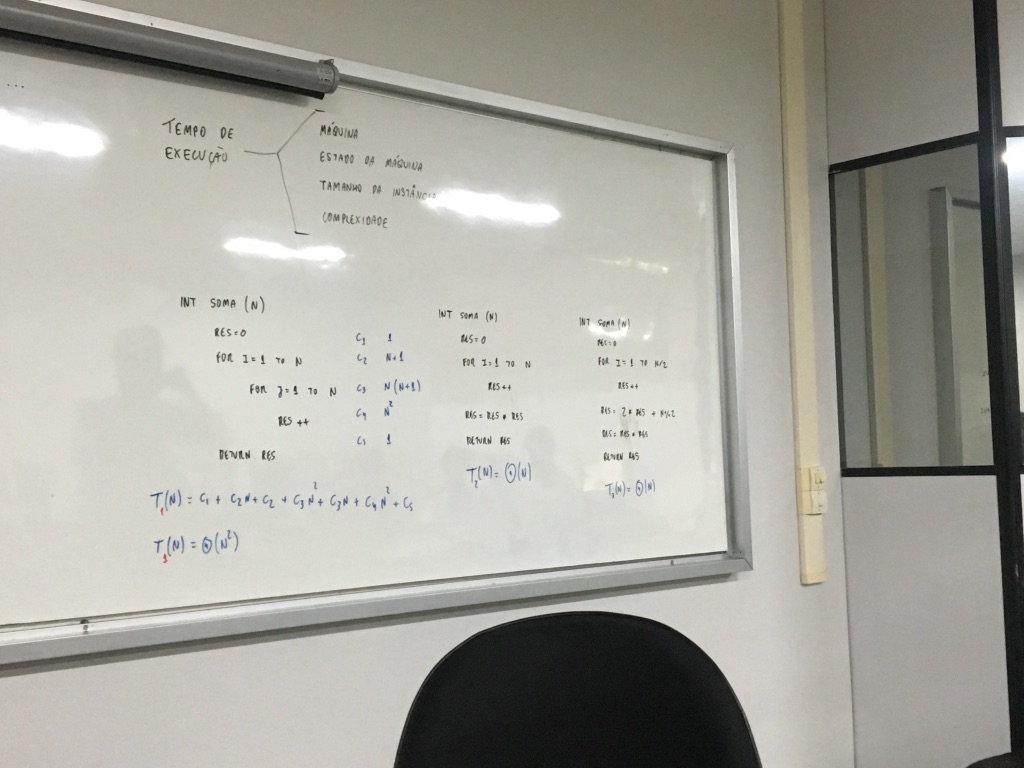 TEMPO DE
EXECUÇÃO
MÁQUINA
ESTADO DA MÁQUINA
TAMANHO DA INSTÂNCIA
COMPLEXIDADE
INT SOMA (N)
RES=0 C₁ 1
FOR I=1 TO N C₂ N+1
FOR J=1 TO N C₃ N(N+1)
RES ++ C₄ N²
RETURN RES C₅ 1
T₁(N) = C₁ + C₂N + C₂ + C₃N² + C₃N + C₄N² + C₅
T₁(N) = Θ(N²)
INT SOMA (N)
RES=0
FOR I=1 TO N
RES++
RES=RES * RES
RETURN RES
T₂(N) = Θ(N)
INT SOMA (N)
RES=0
FOR I=1 TO N/2
RES++
RES= 2 * RES + N%2
RES= RES * RES
RETURN RES
T₃(N) = Θ(N)